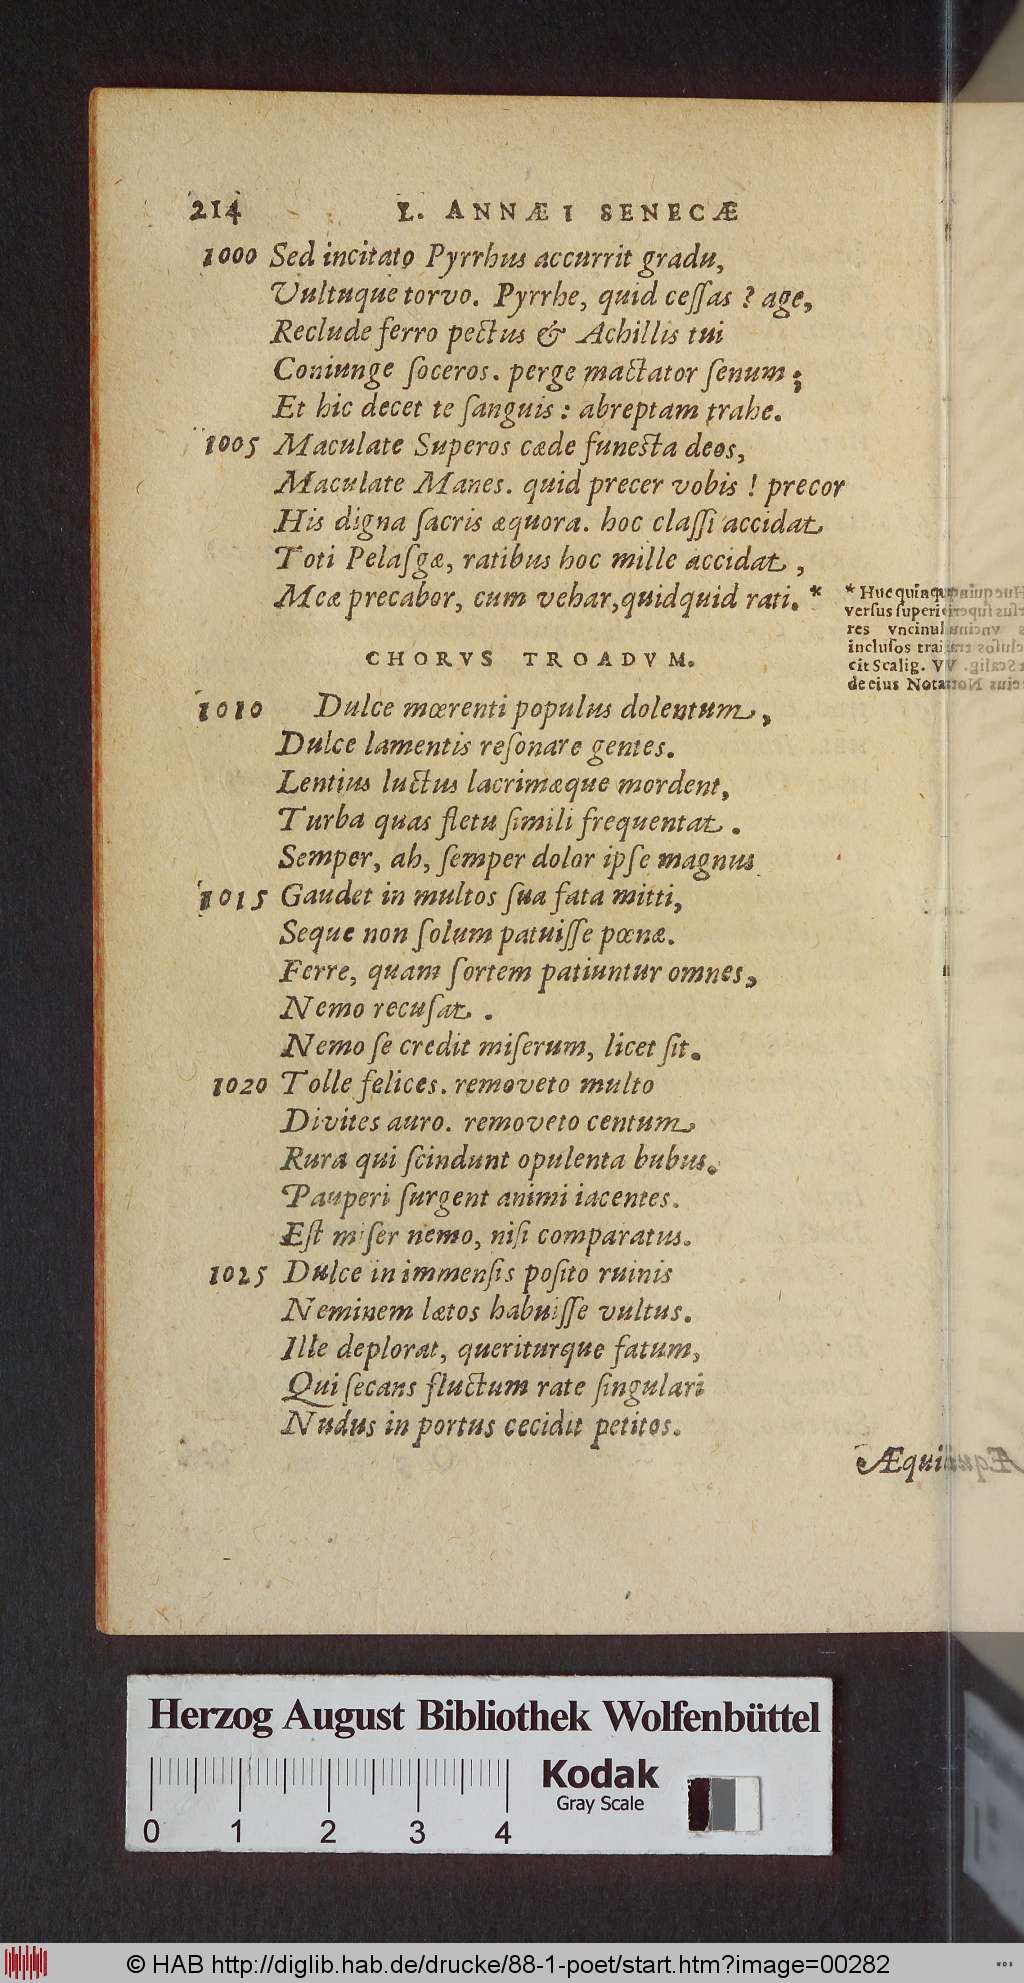 214 L. ANNÆI SENECÆ
1000 Sed incitato Pyrrhus accurrit gradu,
Vultuque torvo. Pyrrhe, quid ceſſas? age,
Reclude ferro pectus & Achillis tui
Coniunge ſoceros. perge mactator ſenum;
Et hic decet te ſanguis: abreptam trahe.
1005 Maculate Superos cæde funesta deos,
Maculate Manes. quid precer vobis! precor
His digna ſacris æquora. hoc claſſi accidat
Toti Pelaſgæ, ratibus hoc mille accidat,
Meæ precabor, cum vehar, quidquid rati. *
* Huc quinque
verſus ſuperio
res vncinul
incluſos traii
cit Scalig. VV
de eius Nota
CHORVS TROADVM.
1010 Dulce mœrenti populus dolentum,
Dulce lamentis reſonare gentes.
Lentius luctus lacrimæque mordent,
Turba quas fletu ſimili frequentat.
Semper, ah, ſemper dolor ipſe magnus
1015 Gaudet in multos ſua fata mitti,
Seque non ſolum patuiſſe pœnæ.
Ferre, quam ſortem patiuntur omnes,
Nemo recuſat.
Nemo ſe credit miſerum, licet ſit.
1020 Tolle felices. removeto multo
Divites auro. removeto centum
Rura qui ſcindunt opulenta bubus.
Pauperi ſurgent animi iacentes.
Eſt miſer nemo, niſi comparatus.
1025 Dulce in immenſis poſito ruinis
Neminem lætos habuiſſe vultus.
Ille deplorat, queriturque fatum,
Qui ſecans fluctum rate ſingulari
Nudus in portus cecidit petitos.
Æqui
Herzog August Bibliothek Wolfenbüttel
Kodak
Gray Scale
0 1 2 3 4
© HAB http://diglib.hab.de/drucke/88-1-poet/start.htm?image=00282